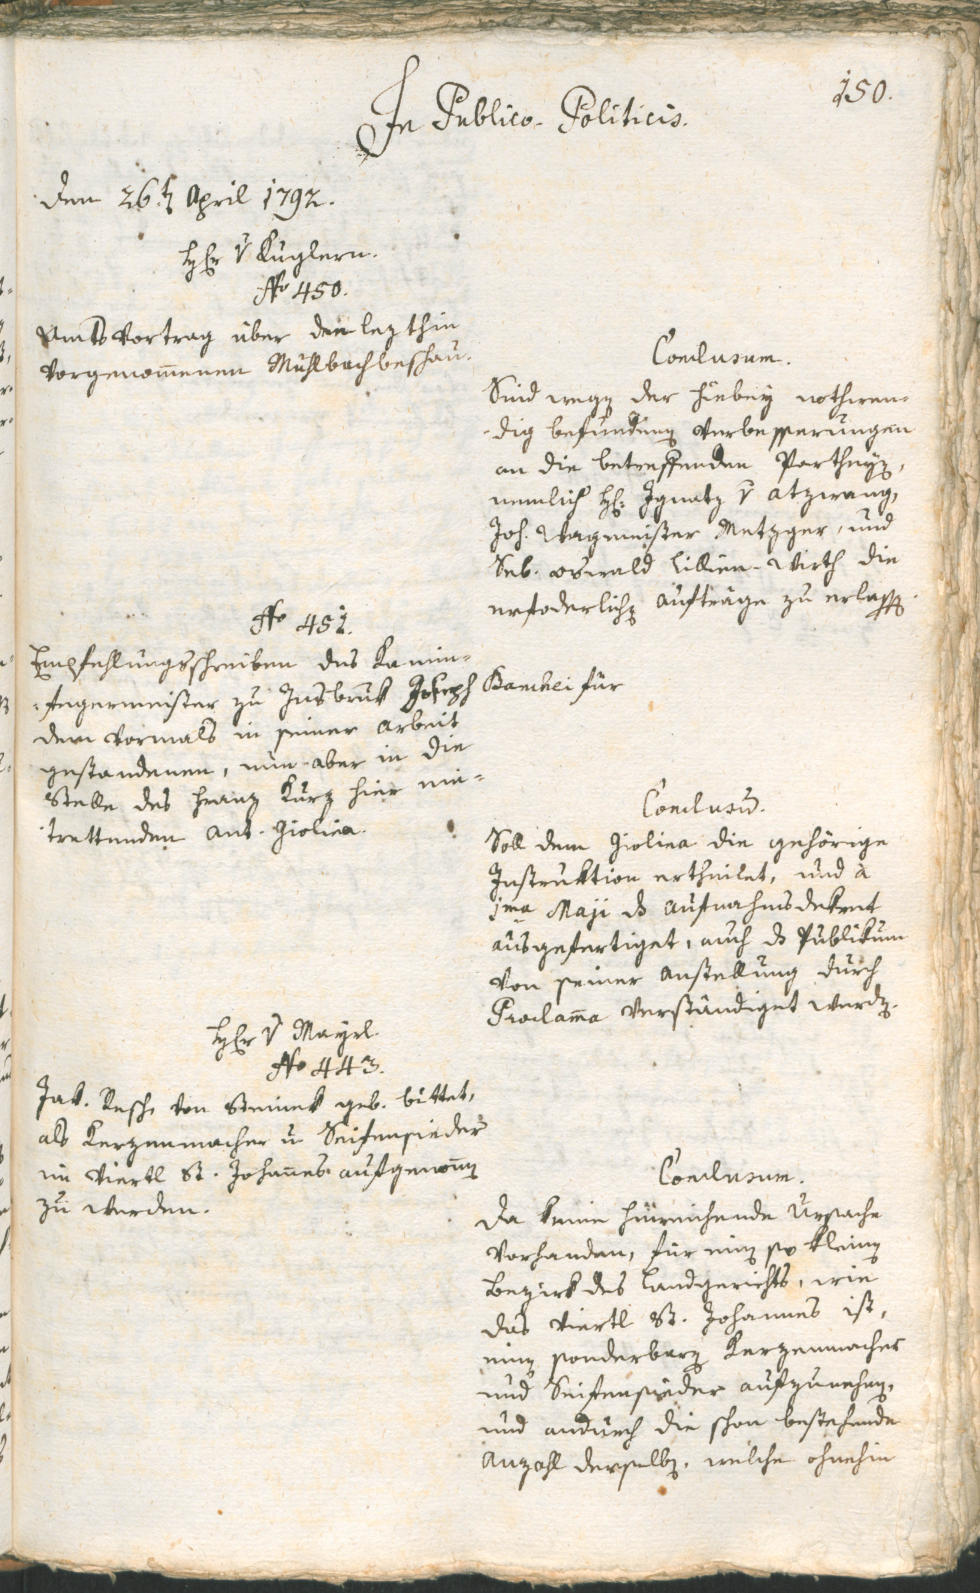 150.
In Publico-Politicis.
Den 26.t April 1792.
H̄Er v̄ Kuglern.
No 450.
Amtsvortrag über den lezthin
vorgenom̄enen Mühlbachbeschau.
Conclusum.
Sind weg der hiebey nothwen=
dig befunden Verbesserungen
an die betreffenden Partheÿ,
nemlich H: Ignatz v̄ Atzwang,
Joh. Wagmeister Metzger, und
Seb. Oswald Lilien-Wirth die
erfoderlich Aufträge zu erlass.
No 451.
Empfehlungsschreiben des Kamin=
fegermeister zu Insbruk Joseph Bamchei für
dem vormals in seiner Arbeit
gestandenen, nun aber in die
Stelle des Franz Kurz hier ein=
trettenden Ant. Giolina.
Conclusum̄.
Soll dem Giolina die gehörige
Instruktion ertheilet, und à
1ma Maji ds Aufnahmsdekret
ausgefertiget, auch ds Publikum
von seiner Anstellung durch
Proclam̄a verständiget werd.
H̄Er v̄ Mayrl.
No 443.
Jak. Resch, von Steinek geb. bittet,
als Kerzenmacher u Seifensieder
im Viertl St. Johan̄es aufgenom̄
zu werden.
Conclusum.
Da keine hinreichende Ursache
vorhanden, für ein so klein
Bezirk des Landgerichts, wie
das Viertl St. Johannes ist,
ein sonderbar Kerzenmacher
und Seifensieder aufzunehm,
und andurch die schon bestehende
Anzahl derselb, welche ohnehin